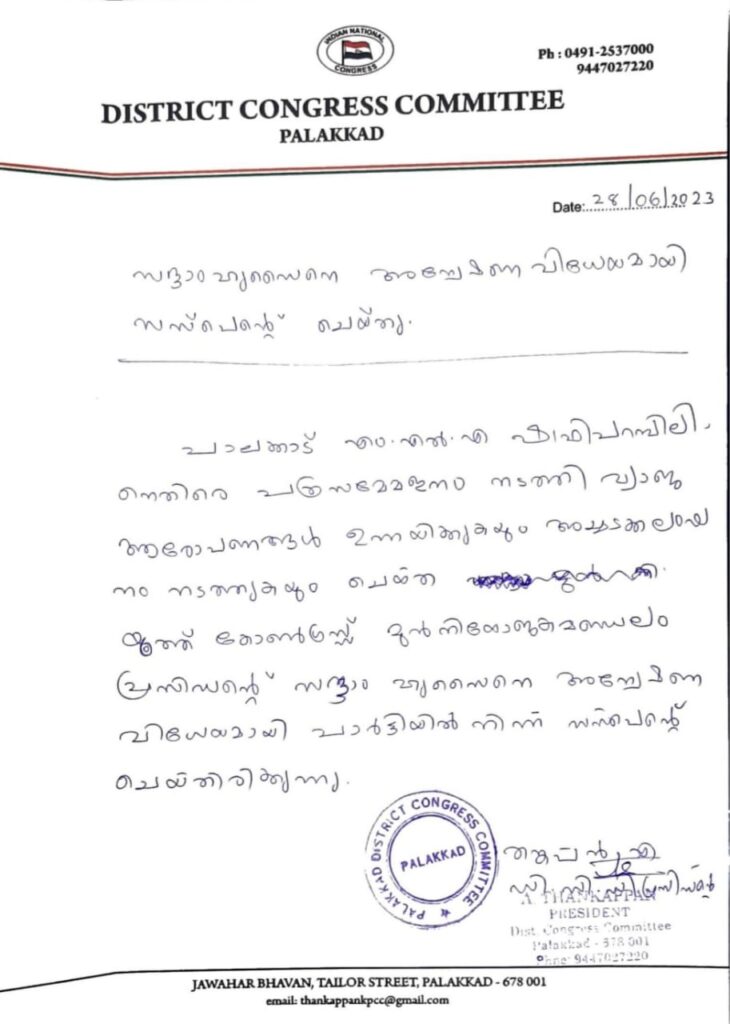 INDIAN NATIONAL
CONGRESS
Ph : 0491-2537000
9447027220
DISTRICT CONGRESS COMMITTEE
PALAKKAD
Date: 28/06/2023
സദ്ദാം ഹുസൈനെ അന്വേഷണ വിധേയമായി
സസ്പെന്റ് ചെയ്തു.
പാലക്കാട് എം.എൽ.എ ഷാഫിപറമ്പിലി.
നെതിരെ പത്രസമ്മേളനം നടത്തി വ്യാജ
ആരോപണങ്ങൾ ഉന്നയിക്കുകയും അച്ചടക്കലംഘ
നം നടത്തുകയും ചെയ്ത
യൂത്ത് കോൺഗ്രസ്സ് മുൻ നിയോജകമണ്ഡലം
പ്രസിഡന്റ് സദ്ദാം ഹുസൈനെ അന്വേഷണ
വിധേയമായി പാർട്ടിയിൽ നിന്ന് സസ്പെന്റ്
ചെയ്തിരിക്കുന്നു.
PALAKKAD DISTRICT CONGRESS COMMITTEE
PALAKKAD
തങ്കപ്പൻ എ
ഡി.സി.സി പ്രസിഡന്റ്
A. THANKAPPAN
PRESIDENT
Dist. Congress Committee
Palakkad - 678 001
Phne: 9447027220
JAWAHAR BHAVAN, TAILOR STREET, PALAKKAD - 678 001
email: thankappankpcc@gmail.com